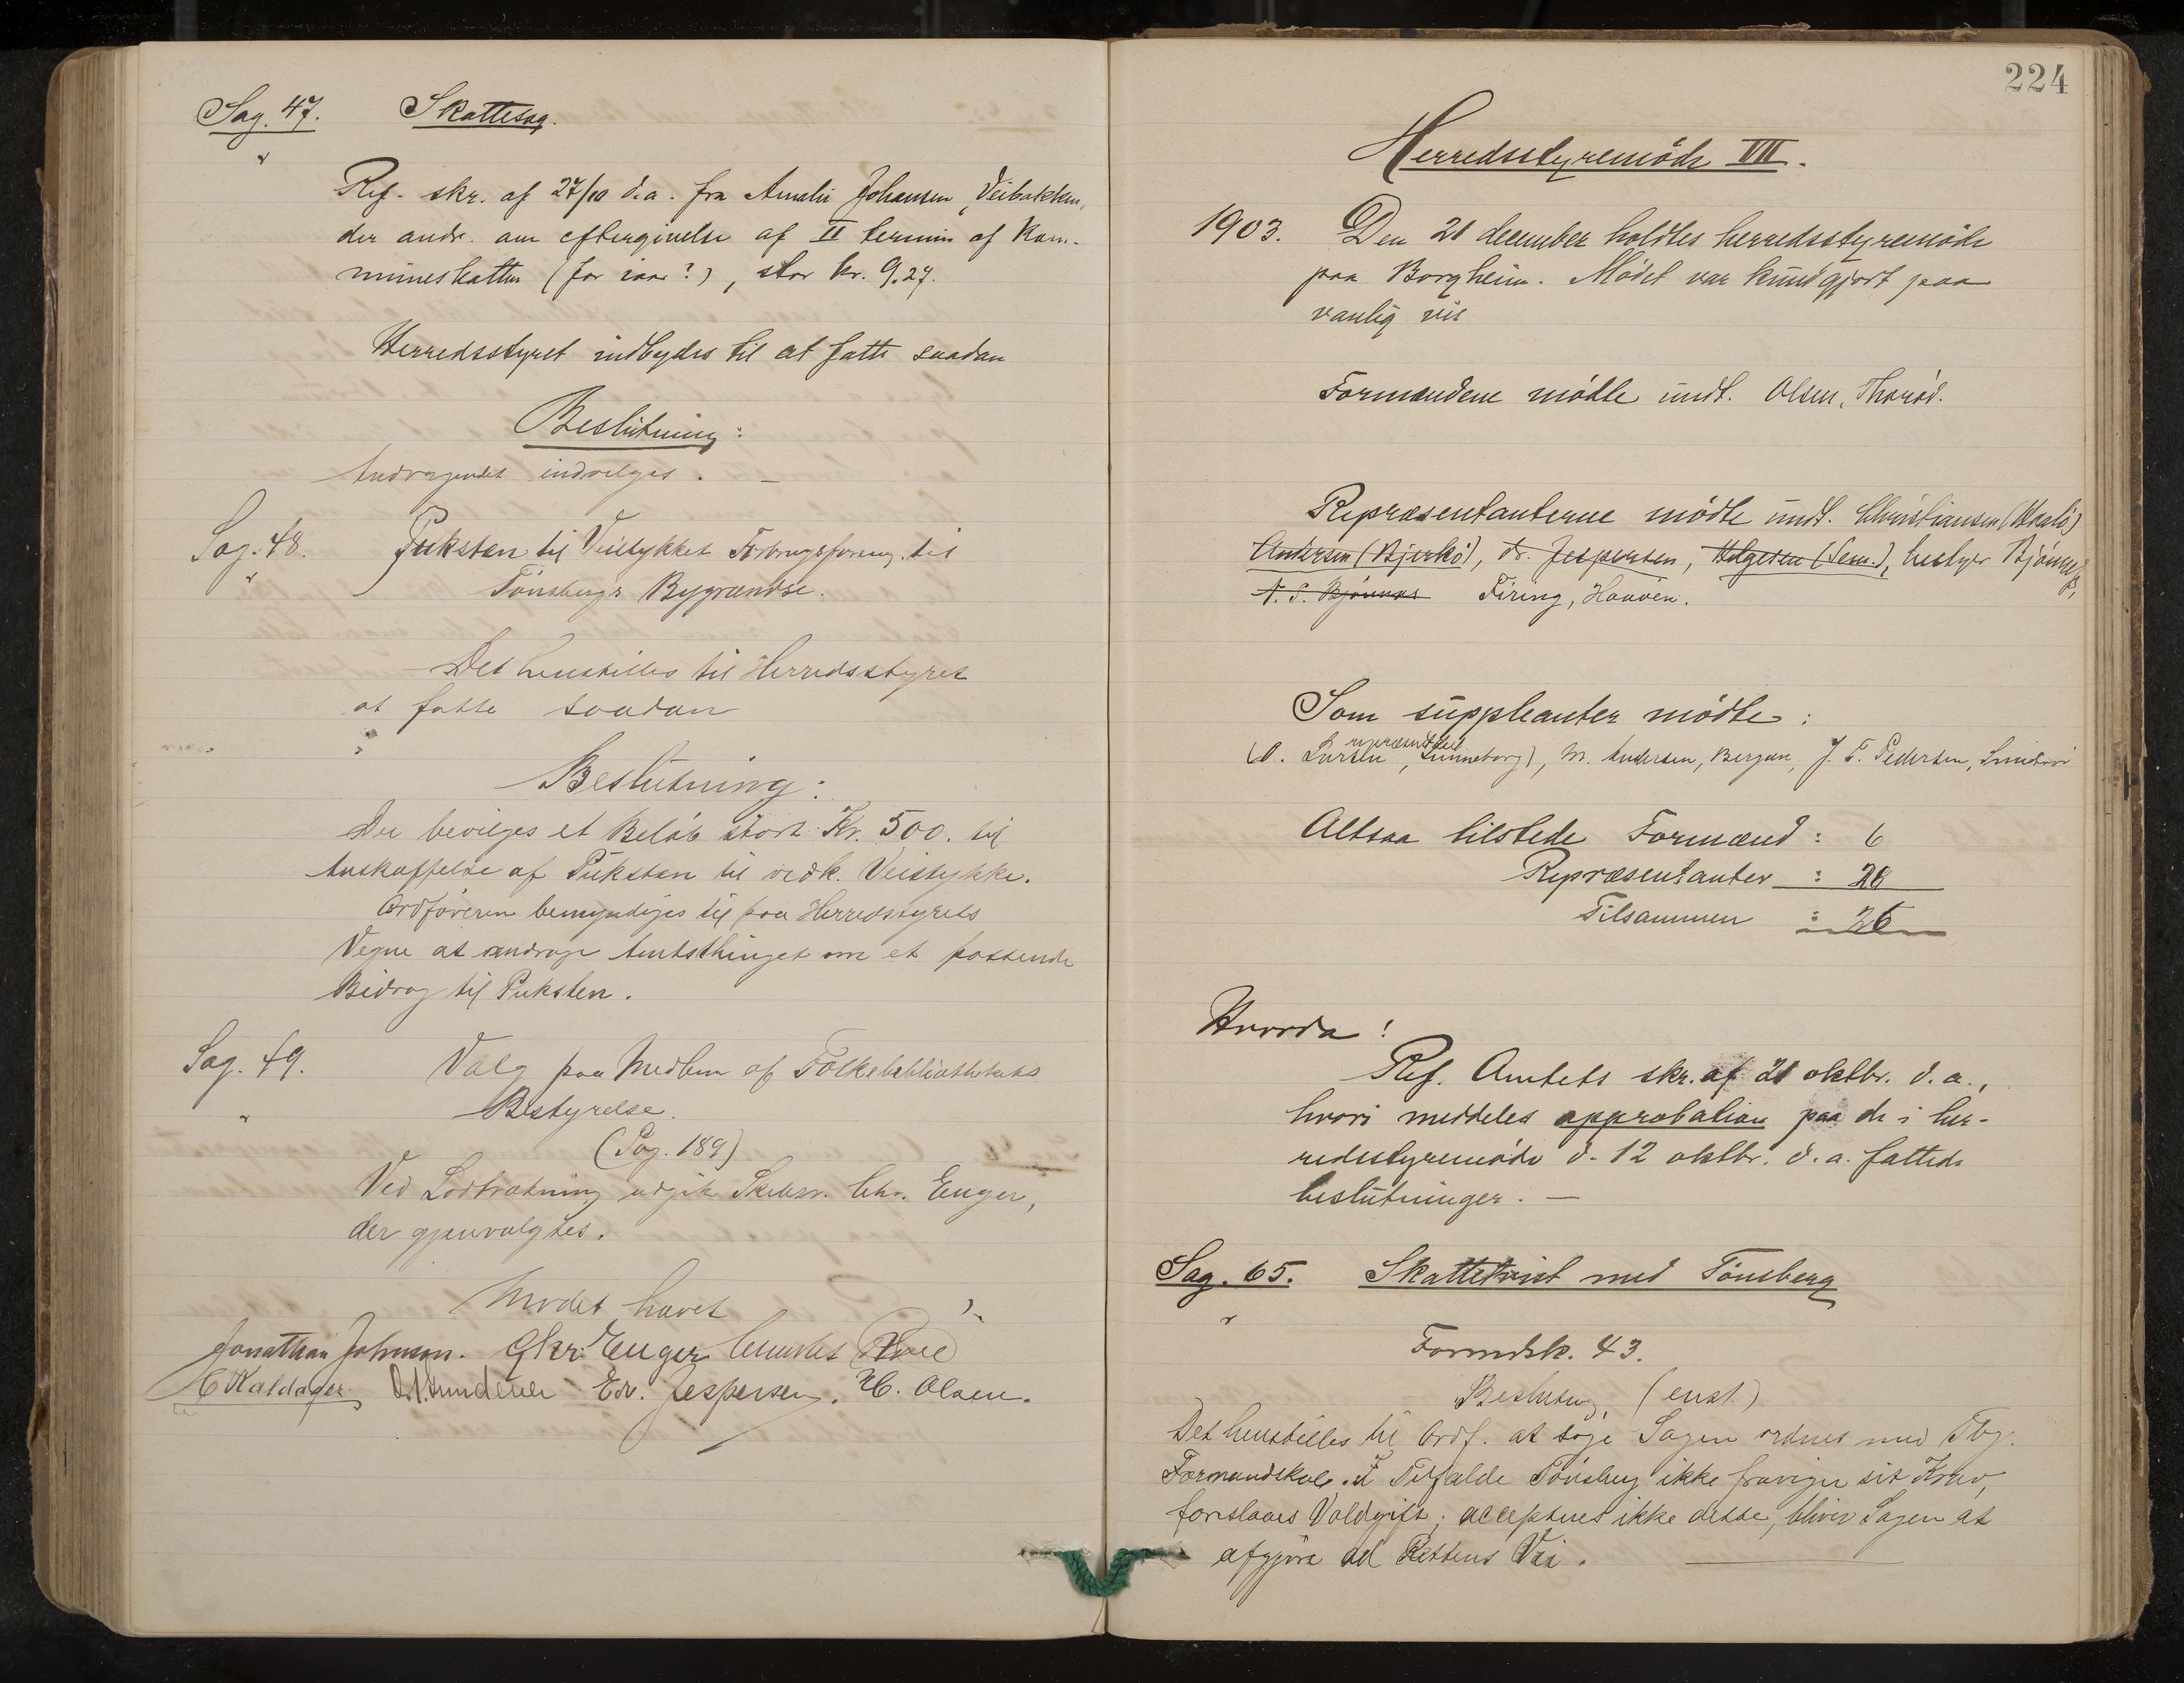 Sag. 47. Skattesag.
Ref. skr. af 27/10 d.a. fra Amalie Johansen, Veibakken,
der andr. om eftergivelse af II termin af kom-
muneskatten (for iaar?), stor kr. 9.27.
Herredsstyret indbydes til at fatte saadan
Beslutning:
Andragendet indvilges. —
Sag. 48. Puksten til Veistykket Forbrugsforening til
Tönsbergs Bygrændse.
Det henstilles til Herredsstyret
at fatte saadan
Beslutning:
Der bevilges et Beløb stort Kr. 500. til
Anskaffelse af Puksten til vedk. Veistykke.
Ordføreren bemyndiges til paa Herredsstyrets
Vegne at andrage Amtsthinget om et passende
Bidrag til Puksten.
Sag. 49. Valg paa Medlem af Folkebibliothekets
Bestyrelse.
(Pag. 189)
Ved Lodtrækning udgik Chr. Enger,
der gjenvalgtes.
Mødet hævet
Jonathan Johnson. Chr: Enger
C Kaldager Edv. Jespersen. H. Olsen.
224
Herredsstyremöde VII.
1903. Den 21 december holdtes herredsstyremöde
paa Borgheim. Mödet var kundgjort paa
vanlig vis
Formændene mödte undt. Olsen, Thoröd.
Repræsentanterne mödte undt. Christiansen
Andersen (Bjerkö), dr. Jespersen, Helgesen (Sem.), bestyr Bjönnes,
Firing, Haaven.
Som suppleanter mödte:
repræsentant
(O. Larsen, Linneborg), M. Andersen, Bergan, J. F. Pedersen,
Altsaa tilstede Formænd : 6
Repræsentanter : 20
Tilsammen : 26
Hvorda!
Ref. Amtets skr. af 21 oktbr. d.a.,
hvori meddeles approbation paa de i her-
redsstyremöde d. 12 oktbr. d.a. fattede
beslutninger. —
Sag. 65. Skattetvist med Tönsberg
Formdsk. 43.
Beslutng. (enst.)
Det henstilles til Ordf. at söge Sagen ordnet med Tbg.
Formandskab. I Tilfælde Tönsberg ikke fraviger sit Krav,
foreslaaes Voldgift; accepteres ikke dette, bliver Sagen at
afgjöre ved Rettens Vei.